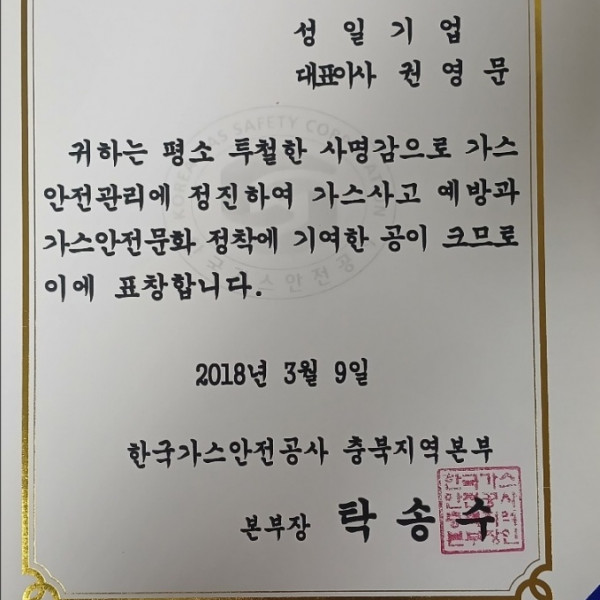 성 일 기 업
대표이사 권 영 문
귀하는 평소 투철한 사명감으로 가스
안전관리에 정진하여 가스사고 예방과
가스안전문화 정착에 기여한 공이 크므로
이에 표창합니다.
2018년 3월 9일
한국가스안전공사 충북지역본부
본부장 탁 송 수
한국가스
안전공사
충북지역
본부장인
KOREA GAS SAFETY CORPORATION
한국가스안전공사